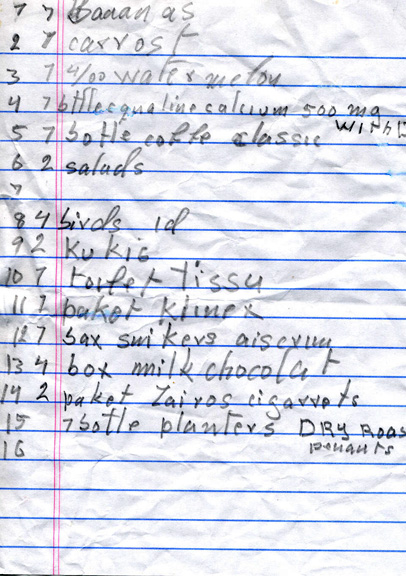 1 7 Banan as
2 7 carrost
3 7 4/00 water melon
4 7 bttlecqualine calcium 500 mg
WITH D
5 7 botle coffe classic
6 2 salads
7
8 4 birds Id
9 2 kukis
10 7 toilet tissu
11 7 paket klinex
12 7 bax snikers aiscrim
13 4 box milk chocolat
14 2 paket Zairos cigarrets
15 7 botle planters DRY ROAS
16 penauts